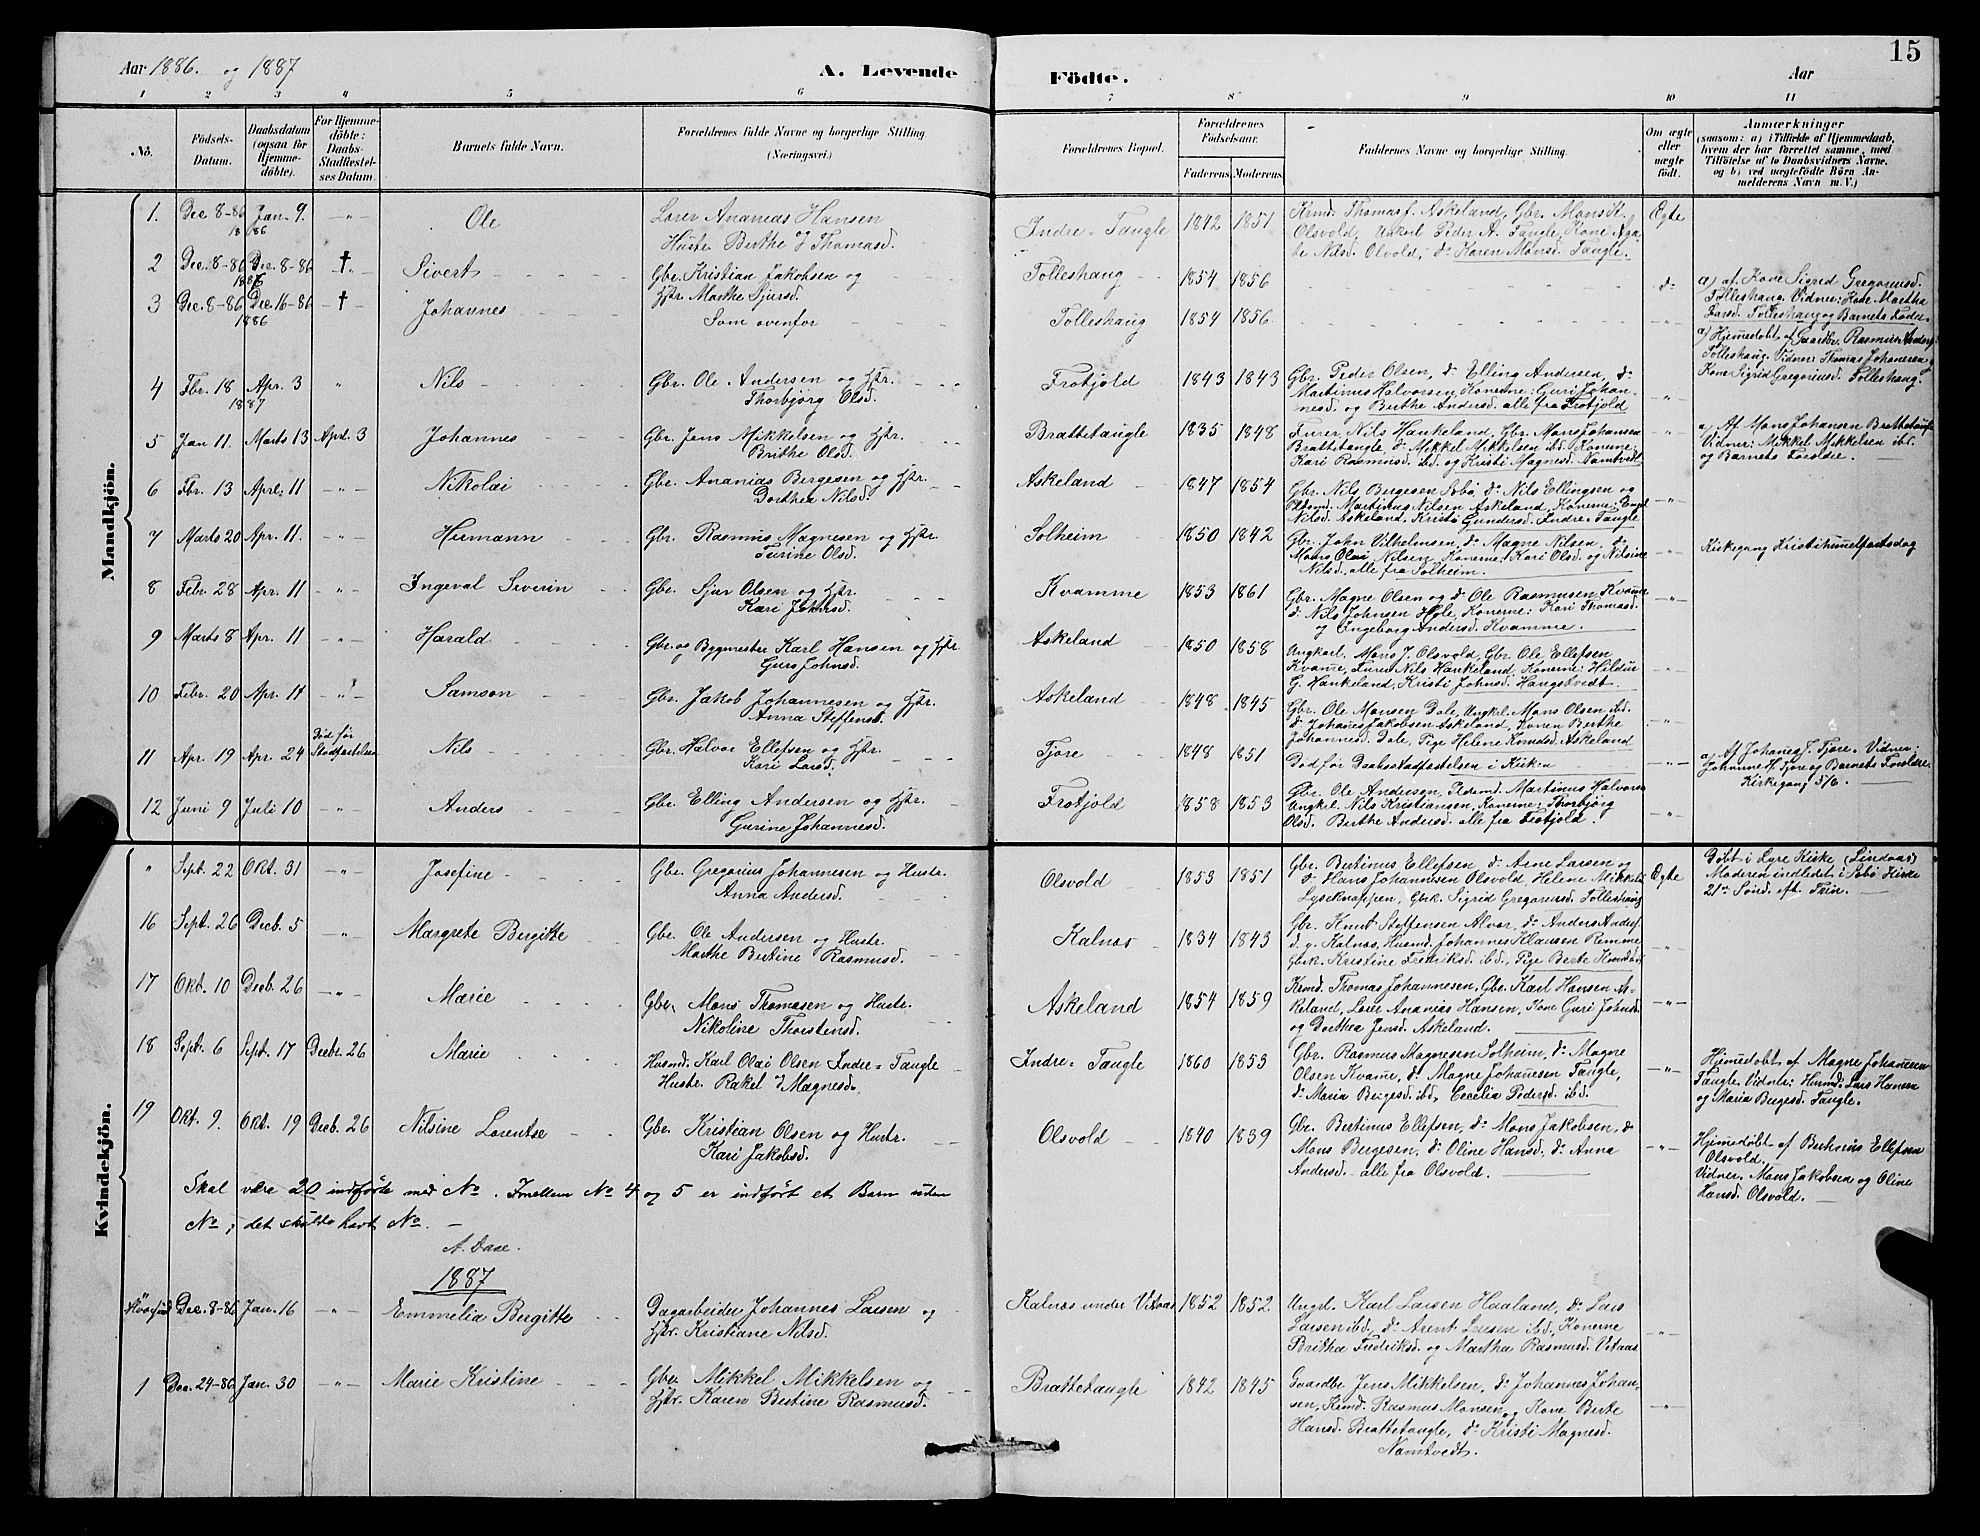 Aar 1886. og 1887
A. Levende
Födte.
Aar
15
1 2 3 4 5 6 7 8 9 10 11
No.
Födsels-Datum.
Daabsdatum (ogsaa for Hjemmedöbte).
For Hjemmedöbte: Daabs-Stadfæstelses Datum.
Barnets fulde Navn.
Forældrenes fulde Navne og borgerlige Stilling.
(Næringsvei.)
Forældrenes Bopæl.
Forældrenes Födselsaar.
Faderens. Moderens.
Faddernes Navne og borgerlige Stilling.
Om ægte eller uægte födt.
Anmærkninger
(saasom: a) i Tilfælde af Hjemmedaab, hvem der har forrettet samme, med Tilföielse af to Daabsvidners Navne, og b) ved uægtefödte Börn Anmelderens Navn m. V.)
Mandkjön.
1. Dec 8-86 Jan. 9. -"- Ole
Lærer Ananias Hansen
Hustr. Berthe J Thomasd.
Indre-Taugle 1842 1851
Krmd. Thomas J. Askeland, Gbr. Mons K.
Olsvold, Unkarl Peder A. Taugle, Kone Aga-
te Nilsd. Olvold, do Karen Monsd. Taugle.
Ægte
2 Dec. 8-86 Dec. 8-86 † Sivert
Gbr. Kristian Jakobsen og
Hstr. Marthe Sjursd.
Tolleshaug 1854 1856 do
a) af Kone Sigrid Gregoriusd.
Tolleshaug. Vidner: Kone Martha
Larsd. Tolleshaug og Barnets Fader.
3 Dec. 8-86 Dec. 16-86 † Johannes
Som ovenfor
Tolleshaug 1854 1856 -"-
a) Hjemedøbt af Gaardbr. Rasmus Anders.
Tolleshaug. Vidner: Thomas Johanesen
Kone Sigrid Gregoriusd. Tolleshaug.
4 Fbr. 18 Apr. 3 " Nils
1887
Gbr. Ole Andersen og Hstr.
Thorbjørg Olsd.
Frotjold 1843 1843
Gbr. Peder Olsen, do Elling Andersen, do
Martinus Halvorsen, Konerne: Guri Johan-
nesd. og Berthe Andersd. alle fra Frotjold
5 Jan 11. Marts 13 April. 3 Johannes
Gbr. Jens Mikkelsen og Hstr.
Brithe Olsd.
Brattetaugle 1835 1848
Furer Nils Hankeland, Gbr. Mons Johansen
Brattetaugle, do Mikkel Mikkelsen ibd. Konerne:
Kari Rasmusd. ibd. og Kristi Magnesd. Namtvedt
a) Af Mons Johansen Brattetaugle
Vidner: Mikkel Mikkelsen ibd.
og Barnets Forældre.
6 Fbr. 13 April 11 -"- Nikolai
Gbr. Ananias Bergesen og Hstr.
Dorthea Nilsd.
Askeland 1847 1854
Gbr. Nils Bergesen Sæbø, do Nils Ellingsen og
Martinus Nilsen Askeland, Konerne:
Nilsd. Askeland, Kristi Gundersd. Indre-Taugle
7 Marts 20 Apr. 11. -"- Hermann
Gbr. Rasmus Magnesen og Hstr.
Turine Olsd.
Solheim 1850 1842
Gbr. John Vilhelmsen, do Magne Nilsen, do
Mons Olai Nilsen, Konerne: Kari Olsd. og Nilsine
Nilsd. alle fra Solheim.
Kirkegang Kristihimelfartsdag
8 Febr. 28 Apr. 11 -"- Ingeval Severin
Gbr. Sjur Olsen og Hstr.
Kari Johnsd.
Kvamme 1853 1861
Gbr. Magne Olsen og do Ole Rasmusen Kvame
do Nils Johnsen Hole, Konerne: Kari Thomasd.
og Ingeborg Andersd. Kvamme.
9 Marts 8 Apr. 11 -"- Harald
Gbr. og Bygmester Karl Hansen og Hstr.
Guri Johnsd.
Askeland 1850 1858
Ungkarl. Mons J. Olsvold, Gbr. Ole Ellefsen
Kvame, Furer Nils Hankeland, Konerne: Hildur
G. Hankeland, Kristi Johnsd. Hangstvedt.
10 Febr. 20 Apr. 11 -"- Samson
Gbr. Jakob Johannesen og Hstr.
Anna Steffensd.
Askeland 1848 1845
Gbr. Ole Monsen Dale, Ungkl. Mons Olsen ibd.
do Johanes Jakobsen Askeland, Konen Berthe
Johannesd. Dale, Pige Helene Knudsd. Askeland
11 Apr. 19 Apr. 24 Død før Stadfæstelsen Nils
Gbr. Halvor Ellefsen og Hstr.
Kari Larsd.
Fjore 1848 1851
Død før Daabsstadfæstelsen i Kirken
a) Af Johanes J. Fjore. Vidner:
Johanne H. Fjore og Barnets Forældre.
Kirkegang 5/6.
12 Juni 9 Juli 10 " Anders
Gbr. Elling Andersen og Hstr.
Gurine Johannesd.
Frotjold 1858 1853
Gbr. Ole Andersen, Martinus Halvorsen
Ungkl. Nils Kristiansen, Konerne: Thorbjörg
Olsd. Berthe Andersd. alle fra Frotjold.
Kvindekjön.
" Sept. 22 Okt. 31 -"- Josefine
Gbr. Gregorius Johannesen og Hustr.
Anna Andersd.
Olsvold 1853 1851
Gbr. Bertinus Ellefsen, do Arne Larsen og
do Hans Johannesen Olsvold, Helene Mikkelsd.
Lyseknappen, Gbrk. Sigrid Gregoriusd. Tolleshaug
Ægte
Døbt i Lyre Kirke (Lindaas)
Moderen indledet i Sæbø Kirke
21de Sønd. eft. Trin.
16 Sept. 26 Decb. 5 -"- Margrete Bergitte
Gbr. Ole Andersen og Hustr.
Marthe Bertine Rasmusd.
Kalnæs 1834 1843
Gbr. Knut Steffensen Alvær, do Anders Anders.
d. y. Kalnæs, Husmd. Johannes Klausen Remme
Gbrk. Kristine Fredriksd. ibd., Pige Berte Knudsd.
17 Okt. 10 Decb. 26 -"- Marie
Gbr. Mons Thomasen og Hustr.
Nikoline Thorstensd.
Askeland 1854 1859
Krmd. Thomas Johannesen, Gbr. Karl Hansen As-
keland, Lærer Ananias Hansen, Kone Guri Johnsd.
og Dorthea Jensd. Askeland.
18 Sept. 6 Sept. 17 Decbr. 26 Marie
Husmd. Karl Olai Olsen Indre-Taugle
Hustr. Rakel J Magnesd.
Indre-Taugle 1860 1853
Gbr. Rasmus Magnesen Solheim, do Magne
Olsen Kvame, do Magne Johannesen Taugle,
do Maria Bergesd. ibd, Cecelia Pedersd. ibd.
Hjemedøbt af Magne Johannesen
Taugle. Vidner: Husmd. Lars Hansen
og Maria Bergesd. Taugle.
19 Okt. 9. Okt. 19 Decb. 26 Nilsine Lorentse
Gbr. Kristian Olsen og Hustr.
Kari Jakobsd.
Olsvold 1840 1839
Gbr. Bertinus Ellefsen, do Mons Jakobsen, do
Mons Bergesen, do Oline Hansd. do Anna
Andersd. - alle fra Olsvold.
Hjemedøbt af Berthinus Ellefsen
Olsvold.
Vidner: Mons Jakobsen og Oline
Hansd. Olsvold.
Skal være 20 indførte med No. Imellem No 4 og 5 er indført et Barn uden
No; det skulde havt No.
A. Daae.
1887
Dec. 8-86 Jan. 16 -"- Emmelia Bergitte
Dagarbeider Johannes Larsen og
Hstr. Kristiane Nilsd.
Kalnæs under Vitaas 1852 1852
Ungkl. Karl Larsen Haaland, do Lars
Larsen ibd., do Arent Larsen ibd., Konerne
Britha Fredriksd. og Martha Rasmusd. Vitaas
1 Dec. 24-86 Jan. 30 -"- Marie Kristine
Gbr. Mikkel Mikkelsen og
Hstr. Karen Bertine Rasmusd.
Brattetaugle 1842 1845
Gaardbr. Jens Mikkelsen, do Johannes Johan-
sen, Krmd. Rasmus Monsen, og Kone Berte
Hansd. Brattetaugle, do Kristi Magnesd.
Namtvedt.